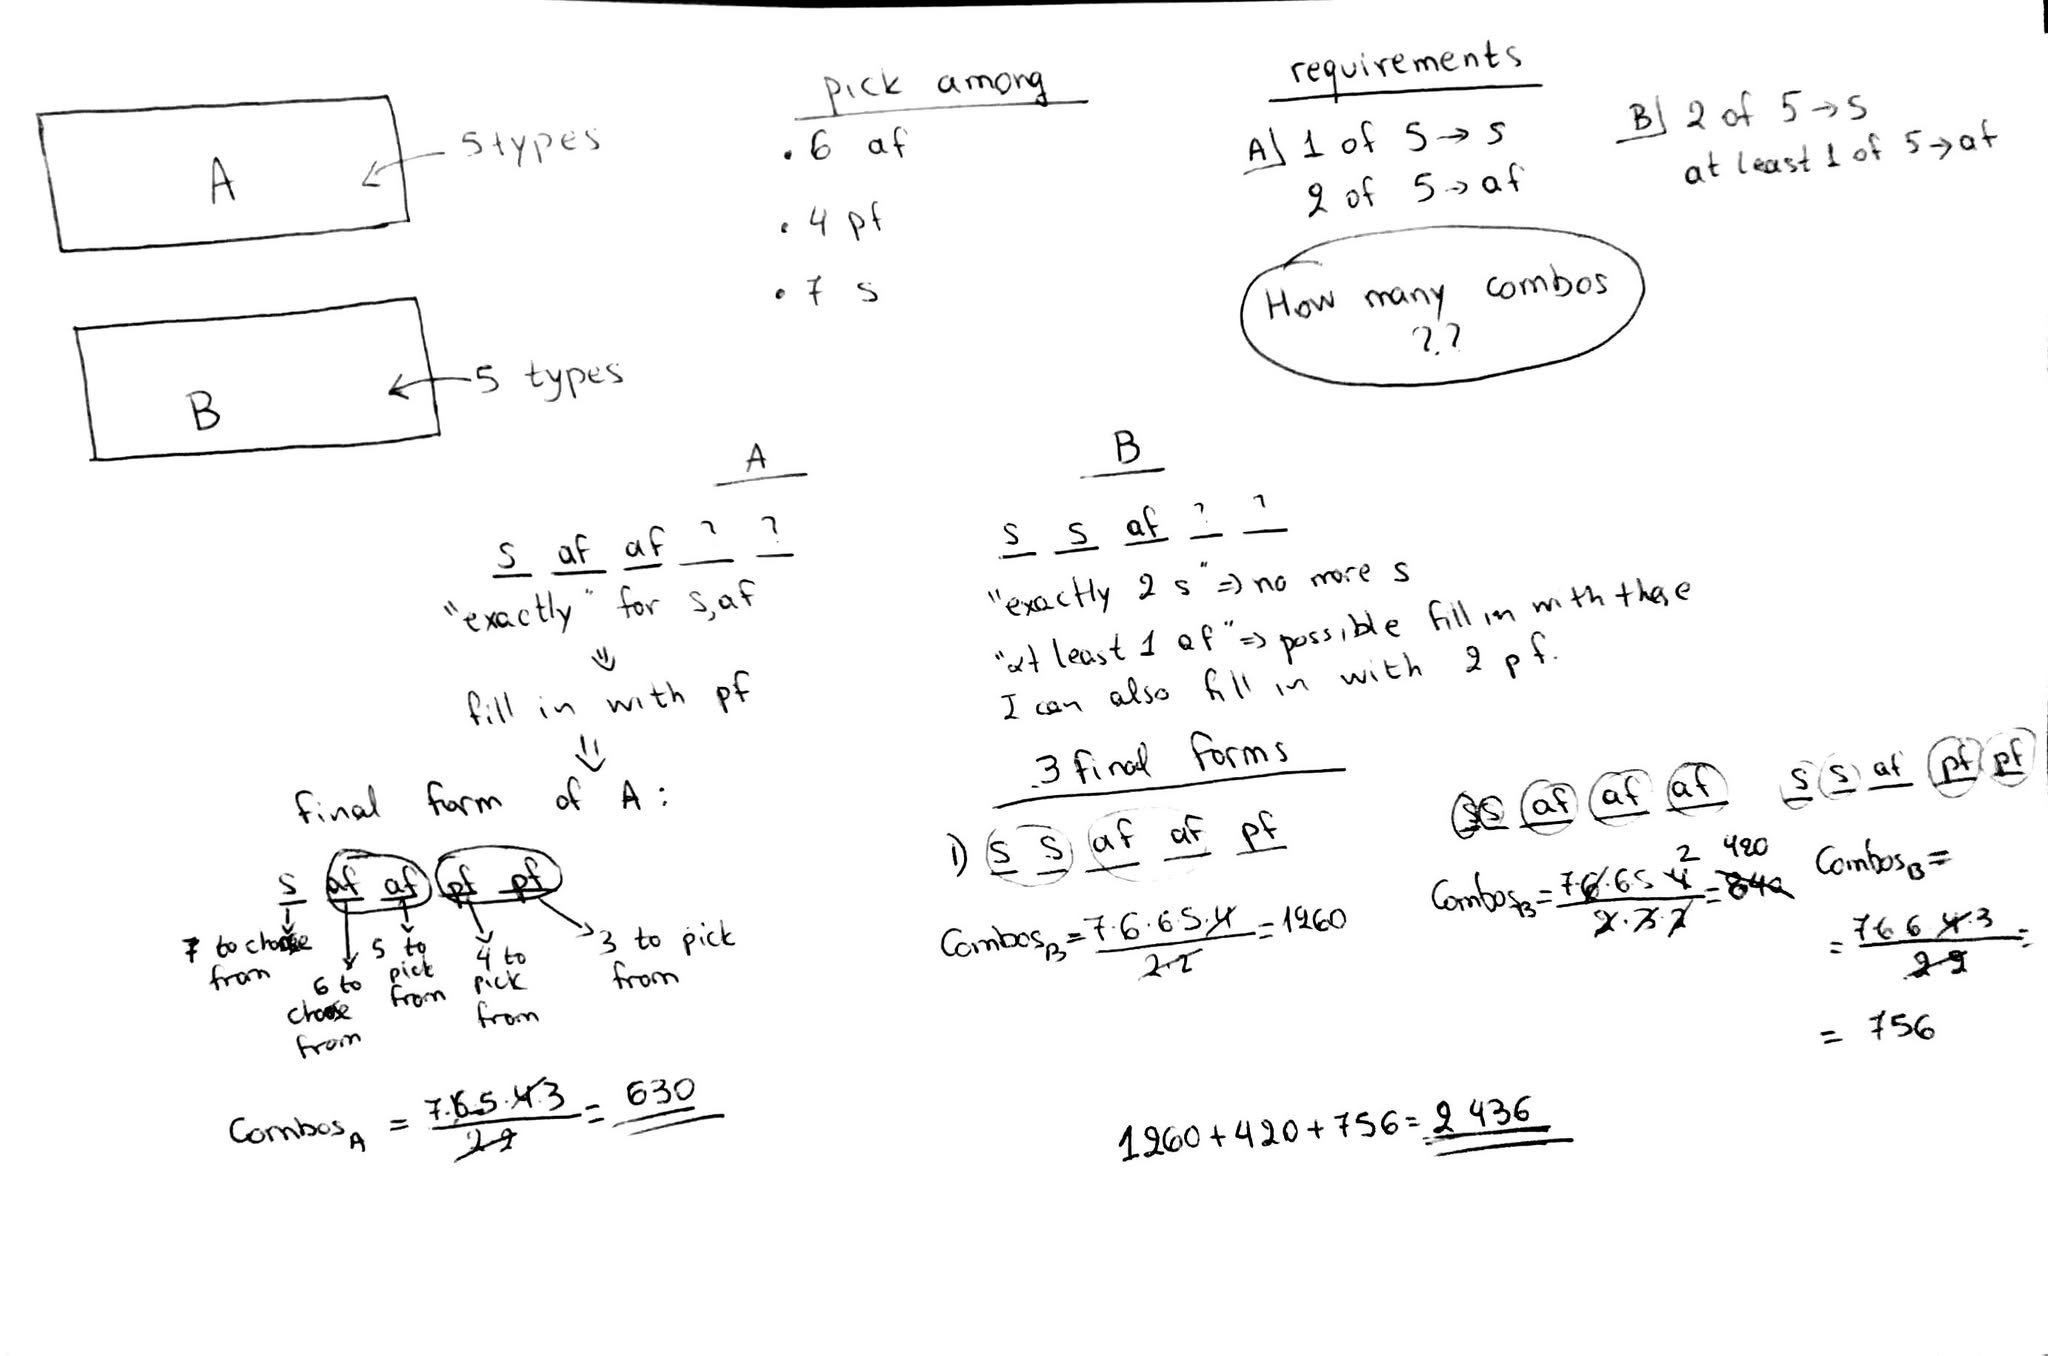 A
5 types
B
5 types
pick among
• 6 af
• 4 pf
• 7 s
requirements
A) 1 of 5 → s
2 of 5 → af
B) 2 of 5 → s
at least 1 of 5 → af
How many combos
??
A
s af af ? ?
"exactly" for s, af
⇓
fill in with pf
⇓
final form of A:
s af af pf pf
7 to choose from
6 to choose from
5 to pick from
4 to pick from
3 to pick from
Combos_A = 7·6·5·4·3 / 2·2 = 630
B
s s af ? ?
"exactly 2 s" ⇒ no more s
"at least 1 af" ⇒ possible fill in with these
I can also fill in with 2 pf.
3 final forms
1) s s af af pf
Combos_B = 7·6·6·5·4 / 2·2 = 1260
s s af af af
Combos_B = 7·6·6·5·4 / 2·3·2 = 840 420
2
s s af pf pf
Combos_B =
= 7 6 6 4·3 / 2 2 =
= 756
1260 + 420 + 756 = 2 436